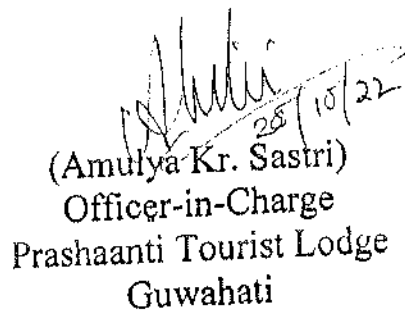 (Amulya Kr. Sastri)
Officer-in-Charge
Prashaanti Tourist Lodge
Guwahati